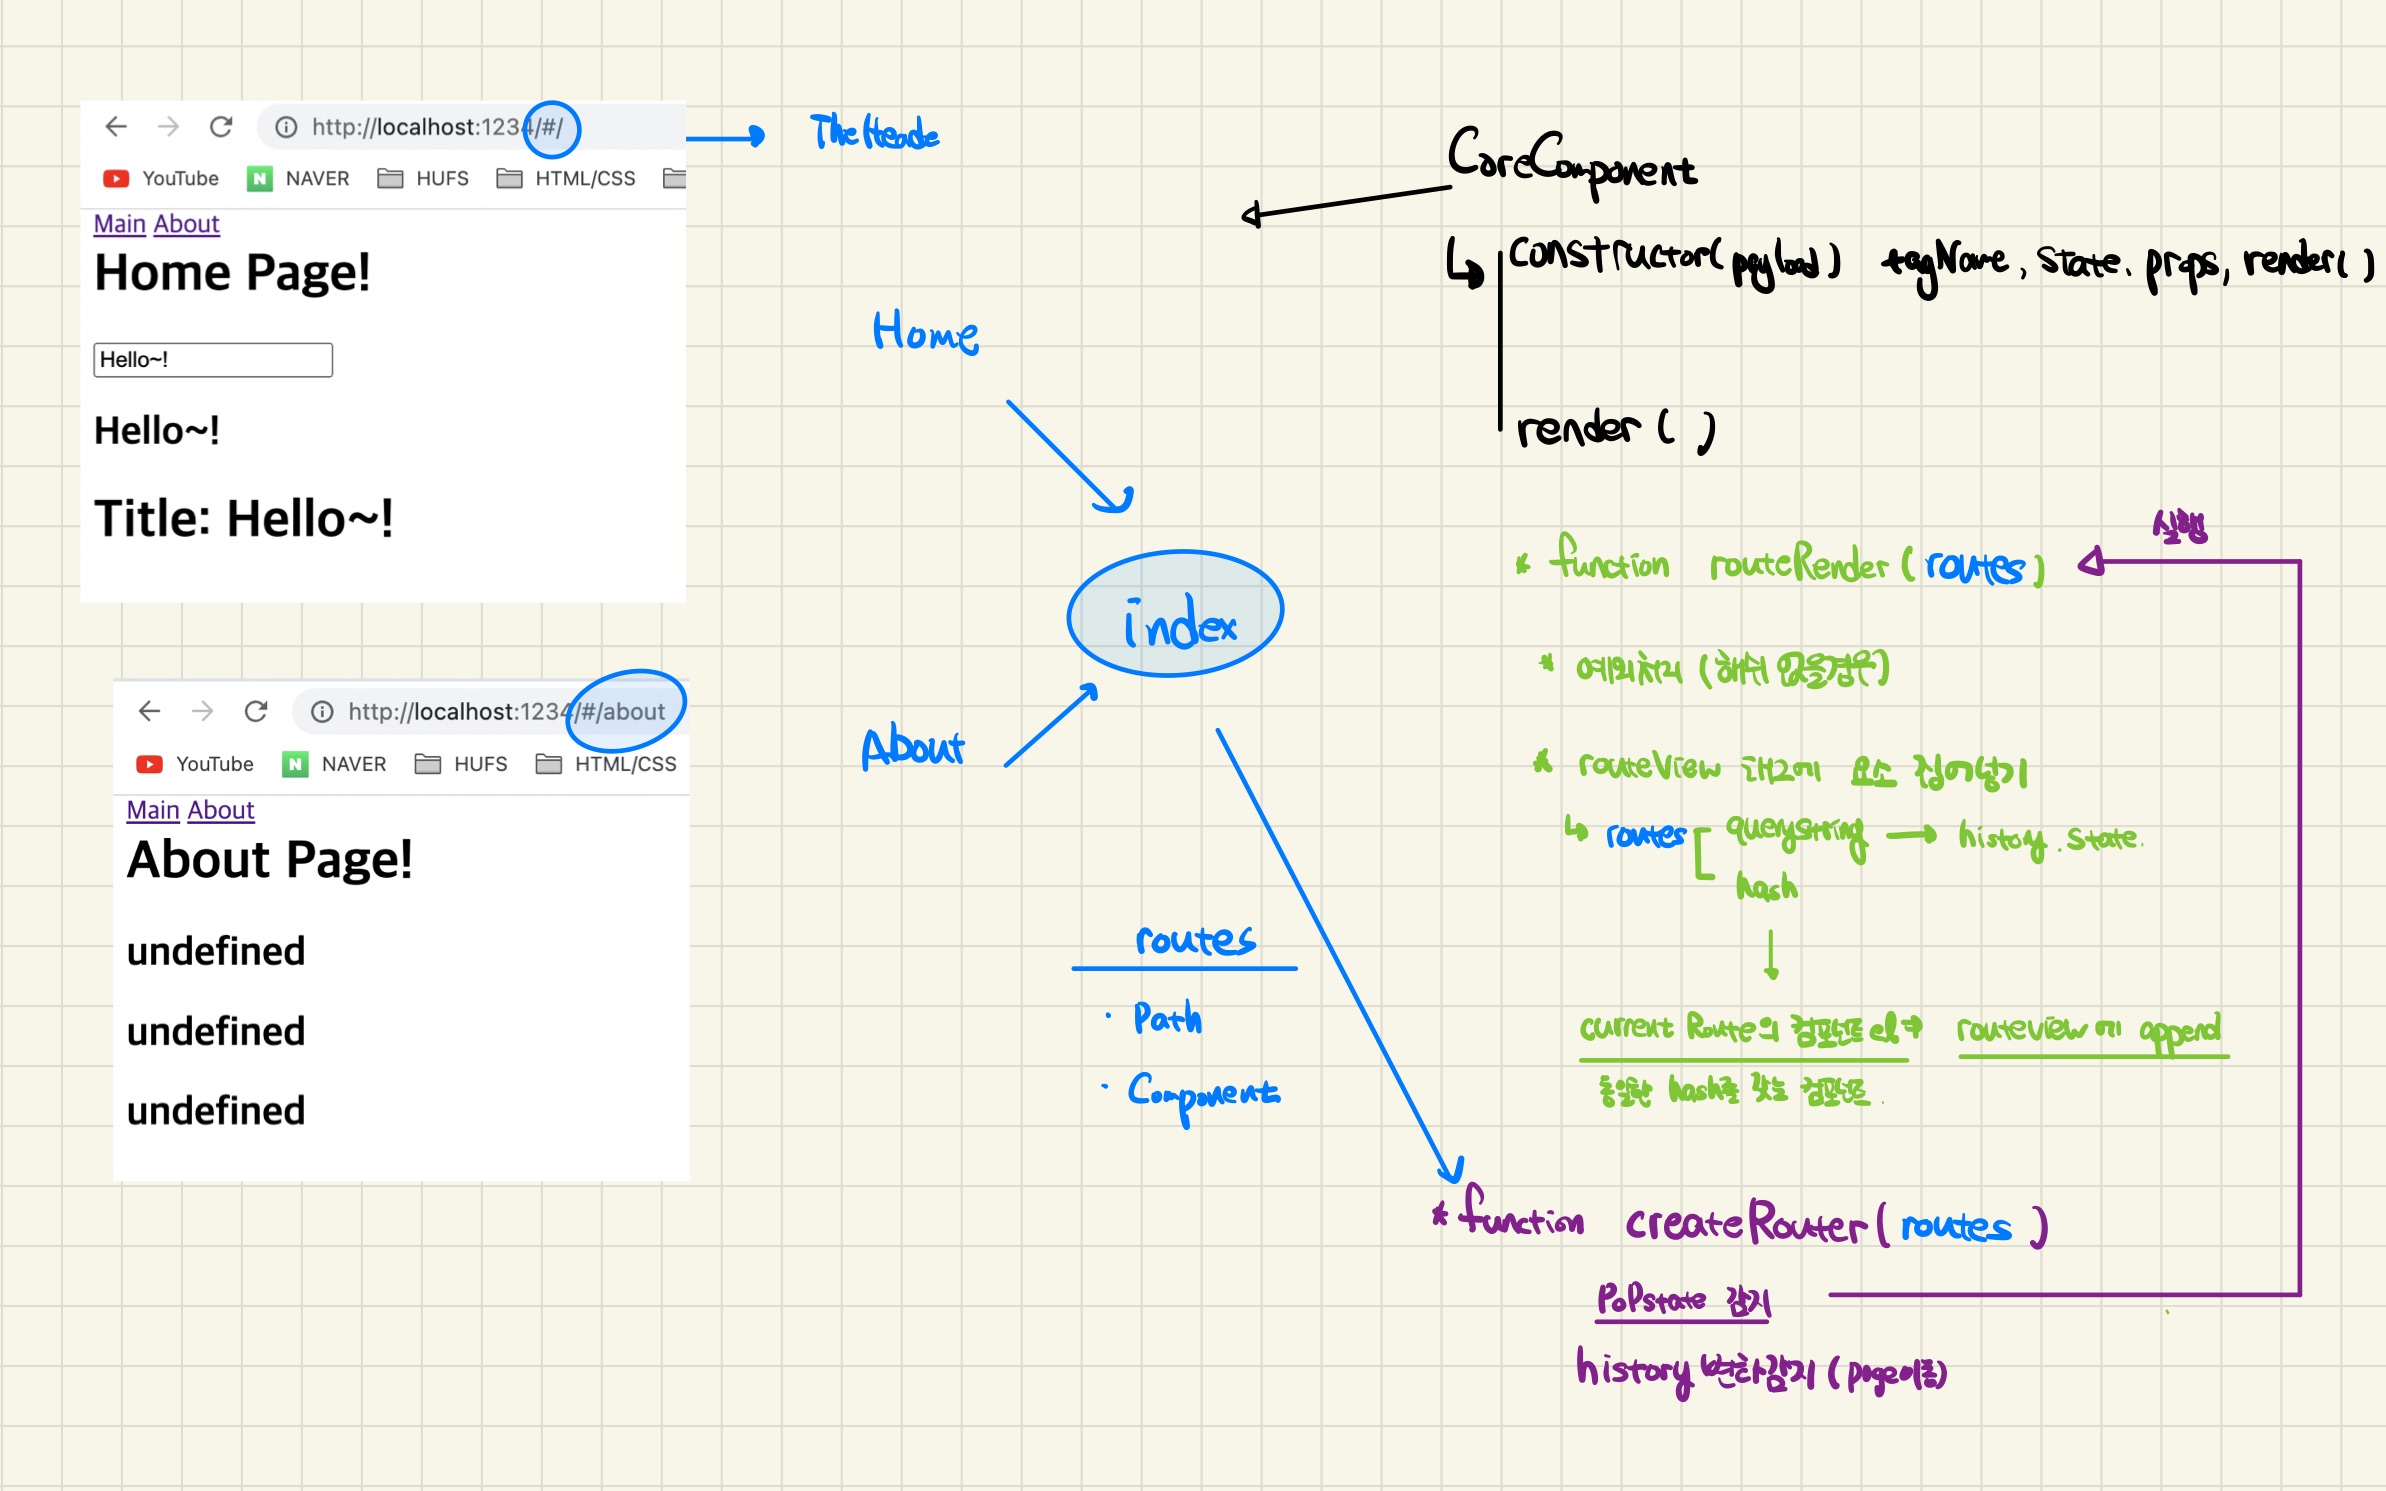 http://localhost:1234/#/
YouTube NAVER HUFS HTML/CSS
Main About
Home Page!
Hello~!
Hello~!
Title: Hello~!
http://localhost:1234/#/about
YouTube NAVER HUFS HTML/CSS
Main About
About Page!
undefined
undefined
undefined
TheHeade
Home
index
About
routes
· Path
· Component
CoreComponent
constructor(payload) tagName, state. props, render()
render ( )
실행
* function routeRender (routes)
* 예외처리 (해쉬 없을경우)
* routeView 태그에 요소 집어넣기
routes querystring → history.state.
hash
current Route의 컴포넌트 el → routeview에 append
동일한 hash를 갖는 컴포넌트.
* function createRouter( routes )
PoPstate 감지
history 변화감지 (page이동)